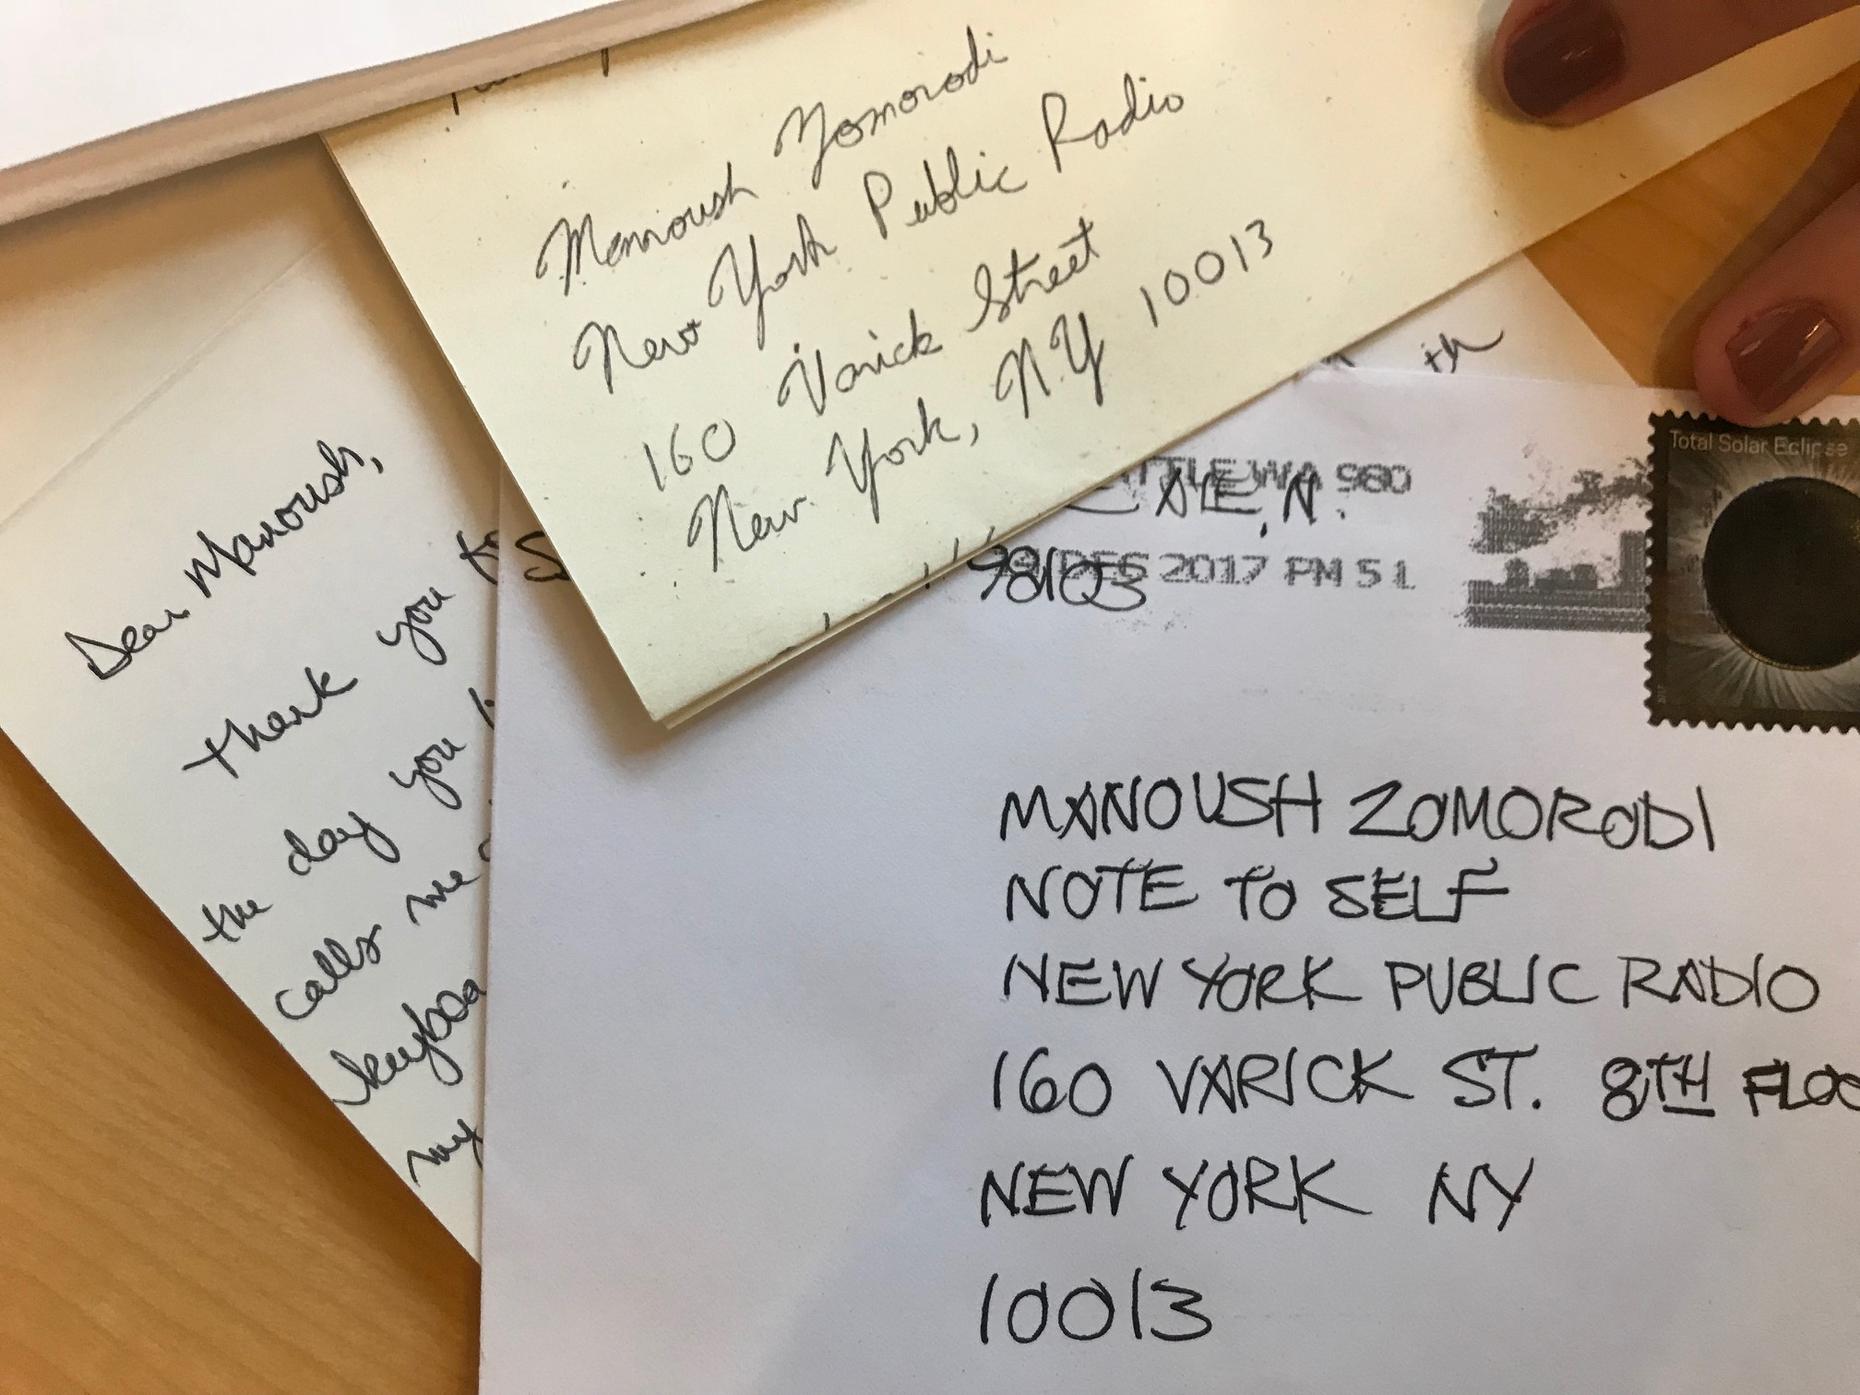 Manoush Zomorodi
New York Public Radio
160 Varick Street
New York, N.Y 10013
th
Dear Manoush,
Thank you
the day you
calls me
my
WA 980
AVE. N.
98103
DEC 2017 PM 5 L
Total Solar Eclipse
MANOUSH ZOMORODI
NOTE TO SELF
NEW YORK PUBLIC RADIO
160 VARICK ST. 8TH FLOO
NEW YORK NY
10013